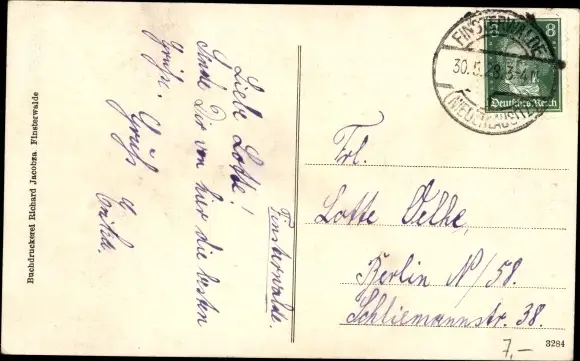 Finsterwalde.
Liebe Lotte!
Sende Dir von hier die besten
Grüße. Gruß
Frl.
Lotte Oelke,
Berlin N/58.
Schliemannstr. 38.
FINSTERWALDE
30.5.28.3-4N
(NIEDERLAUSITZ)
8
Deutsches Reich
Buchdruckerei Richard Jacobza, Finsterwalde
7,–
3284